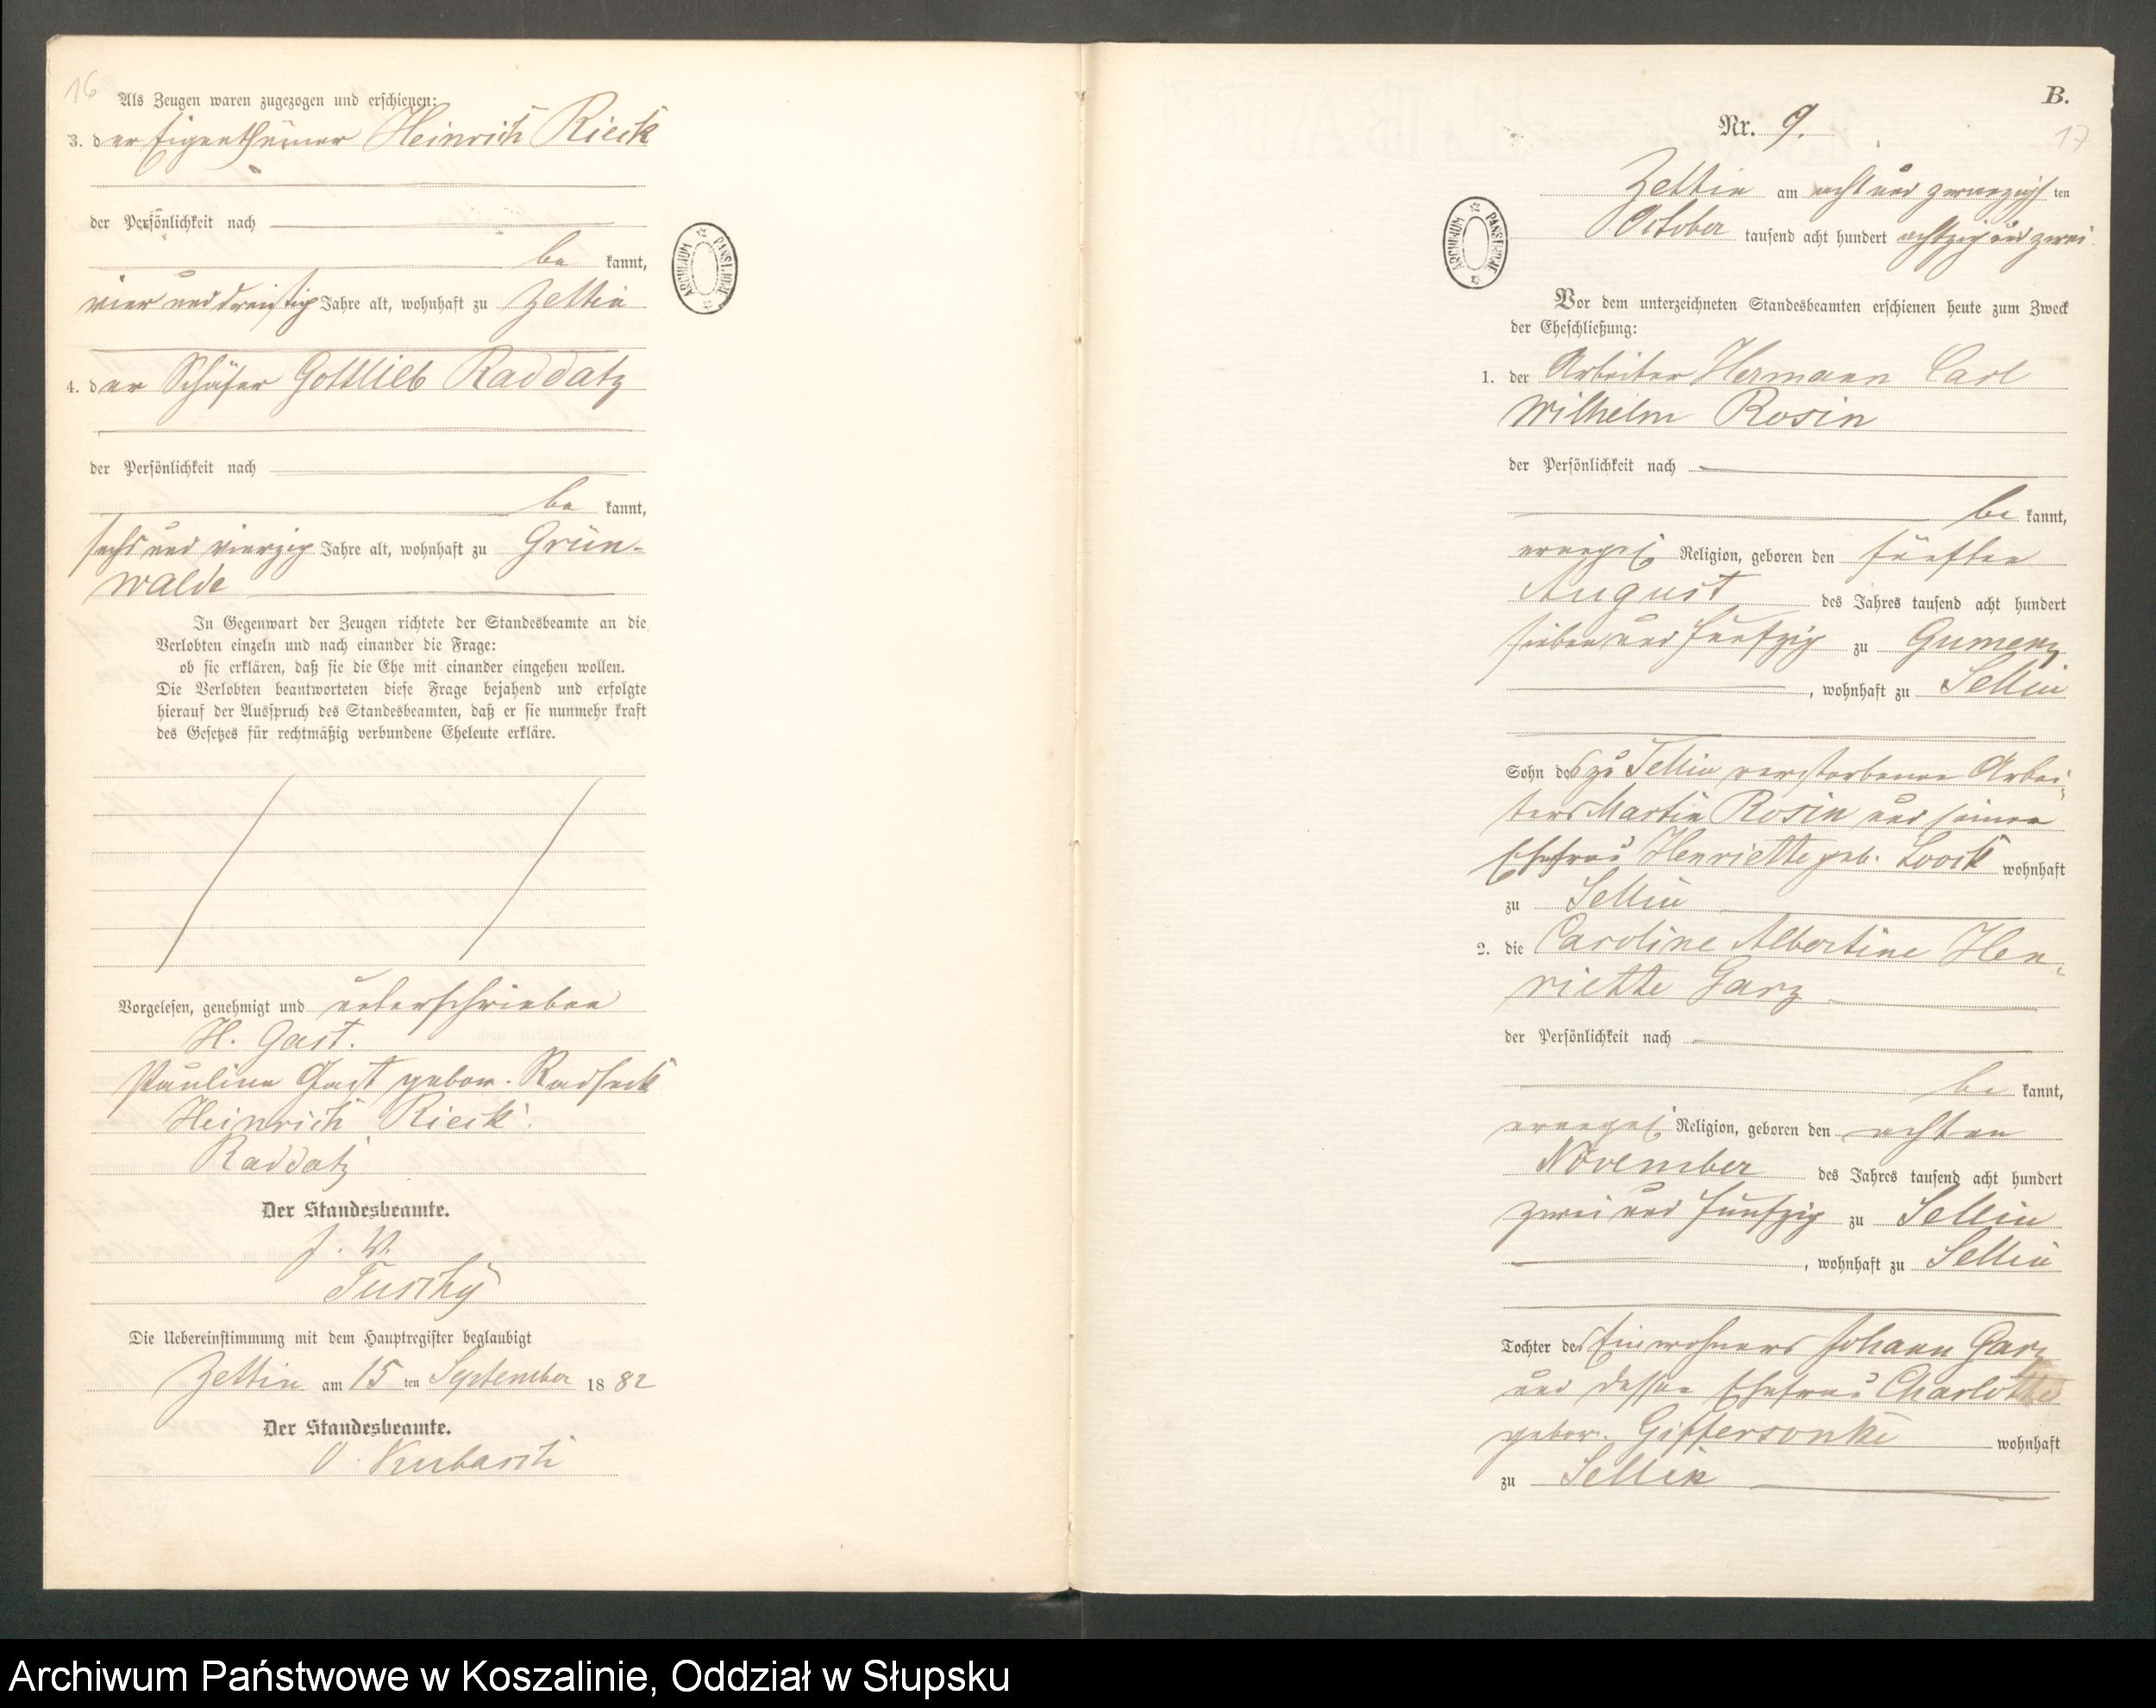 16
Als Zeugen waren zugezogen und erschienen:
3. der Eigenthümer Heinrich Rieck
der Persönlichkeit nach
be kannt,
vier und dreißig Jahre alt, wohnhaft zu Zettin
4. der Schäfer Gottlieb Raddatz
der Persönlichkeit nach
be kannt,
sechs und vierzig Jahre alt, wohnhaft zu Grün-
walde
In Gegenwart der Zeugen richtete der Standesbeamte an die
Verlobten einzeln und nach einander die Frage:
ob sie erklären, daß sie die Ehe mit einander eingehen wollen.
Die Verlobten beantworteten diese Frage bejahend und erfolgte
hierauf der Ausspruch des Standesbeamten, daß er sie nunmehr kraft
des Gesetzes für rechtmäßig verbundene Eheleute erkläre.
Vorgelesen, genehmigt und unterschrieben
H. Gast.
Pauline Gast gebor.
Heinrich Rieck.
Raddatz
Der Standesbeamte.
J. V.
Die Uebereinstimmung mit dem Hauptregister beglaubigt
Zettin am 15 ten September 18 82
Der Standesbeamte.
O. Kubasch
ARCHIWUM PAŃSTWOWE
B.
17
Nr. 9.
ARCHIWUM PAŃSTWOWE
Zettin am acht und zwanzigs ten
October tausend acht hundert achtzig und zwei
Vor dem unterzeichneten Standesbeamten erschienen heute zum Zweck
der Eheschließung:
1. der Arbeiter Hermann Carl
Wilhelm Rosin
der Persönlichkeit nach
be kannt,
evangel. Religion, geboren den fünften
August des Jahres tausend acht hundert
sieben und funfzig zu Gumenz
, wohnhaft zu Sellin
Sohn des zu Sellin verstorbenen Arbei-
ters Martin Rosin und seiner
Ehefrau Henriette geb. Loock wohnhaft
zu Sellin
2. die Caroline Albertine Hen-
riette Garz
der Persönlichkeit nach
be kannt,
evangel. Religion, geboren den achten
November des Jahres tausend acht hundert
zwei und funfzig zu Sellin
, wohnhaft zu Sellin
Tochter des Einwohners Johann Garz
und dessen Ehefrau Charlotte
gebor. Giffersonke wohnhaft
zu Sellin
Archiwum Państwowe w Koszalinie, Oddział w Słupsku